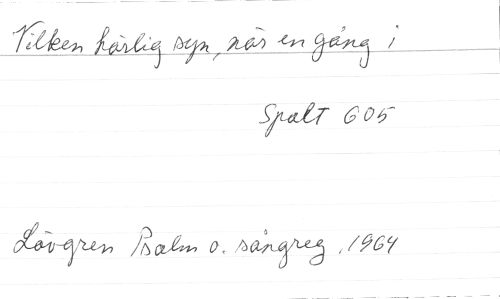 Vilken härlig syn, när en gång i
Spalt 605
Lövgren Psalm o. sångreg, 1964